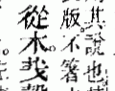 其說也
版。不箸
從木。𢦏聲